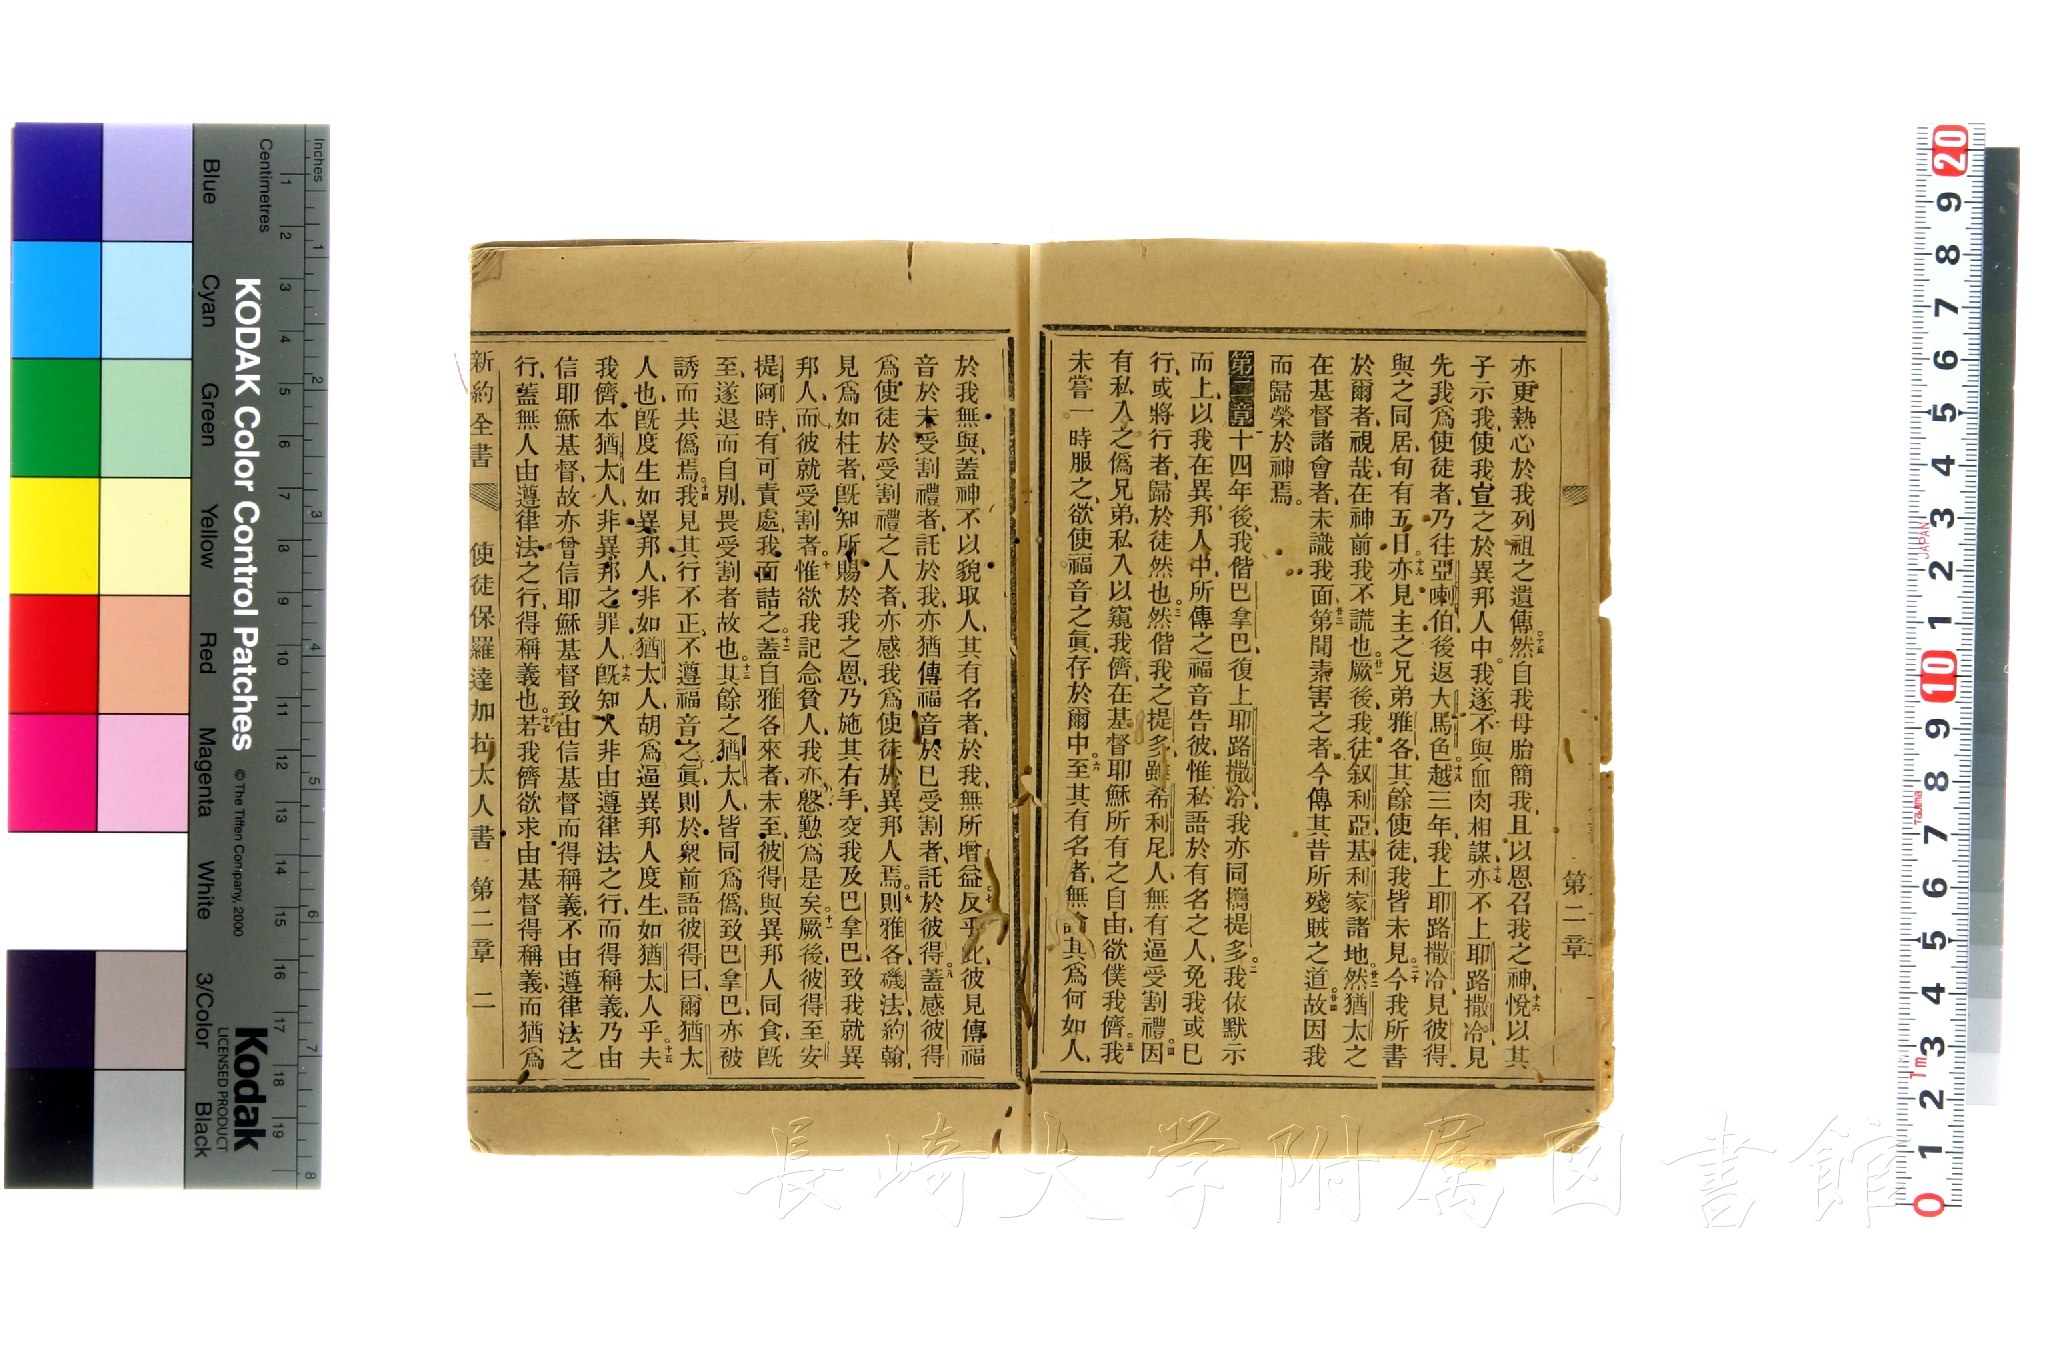 亦更熱心於我列祖之遺傳、十五然自我母胎簡我、且以恩召我之神、十六悅以其
子示我、使我宣之於異邦人中。我遂不與血肉相謀、十七亦不上耶路撒冷、見
先我爲使徒者、乃往亞喇伯、後返大馬色。越三年、十八我上耶路撒冷見彼得、
與之同居、旬有五日、十九亦見主之兄弟雅各、其餘使徒、我皆未見。二十今我所書
於爾者、視哉、在神前我不謊也。廿一厥後、我往叙利亞、基利家諸地。廿二然猶太之
在基督諸會者、未識我面、廿三第聞素害之者、今傳其昔所殘賊之道、廿四故因我
而歸榮於神焉。
第二章 十四年後、我偕巴拿巴、復上耶路撒冷、我亦同攜提多、二我依默示
而上、以我在異邦人中、所傳之福音告彼、惟私語於有名之人、免我或已
行、或將行者、歸於徒然也。三然偕我之提多、雖希利尼人、無有逼受割禮。四因
有私入之僞兄弟、私入以窺我儕、在基督耶穌所有之自由、欲僕我儕、五我
未嘗一時服之、欲使福音之眞、存於爾中。六至其有名者、無論其爲何如人、
第二章
於我無與、蓋神不以貌取人、其有名者、於我、無所增益、七反乎此、彼見傳福
音於未受割禮者、託於我、亦猶傳福音於已受割者、託於彼得、八蓋感彼得
爲使徒於受割禮之人者、亦感我爲使徒於異邦人焉、九則雅各、磯法、約翰、
見爲如柱者、既知所賜於我之恩、乃施其右手、交我及巴拿巴、致我就異
邦人、而彼就受割者、十惟欲我記念貧人、我亦慇懃爲是矣。十一厥後、彼得至安
提阿時、有可責處、我面詰之。十二蓋自雅各來者、未至、彼得與異邦人同食、既
至、遂退而自別、畏受割者故也。十三其餘之猶太人、皆同爲僞、致巴拿巴、亦被
誘而共僞焉。十四我見其行不正、不遵福音之眞、則於衆前語彼得曰、爾猶太
人也、既度生如異邦人、非如猶太人、胡爲逼異邦人度生、如猶太人乎。十五夫
我儕本猶太人、非異邦之罪人、十六既知人非由遵律法之行、而得稱義、乃由
信耶穌基督、故亦曾信耶穌基督、致由信基督而得稱義、不由遵律法之
行、蓋無人由遵律法之行、得稱義也。十七若我儕欲求由基督得稱義、而猶爲
新約全書 使徒保羅達加拉太人書 第二章 二
KODAK Color Control Patches
© The Tiffen Company, 2000
Kodak
LICENSED PRODUCT
Inches
Centimetres
Blue Cyan Green Yellow Red Magenta White 3/Color Black
1 2 3 4 5 6 7 8 9 10 11 12 13 14 15 16 17 18 19
1 2 3 4 5 6 7 8
20 9 8 7 6 5 4 3 2 1 10 9 8 7 6 5 4 3 2 1 0
JAPAN
TaJIma
1m
長崎大学附属図書館